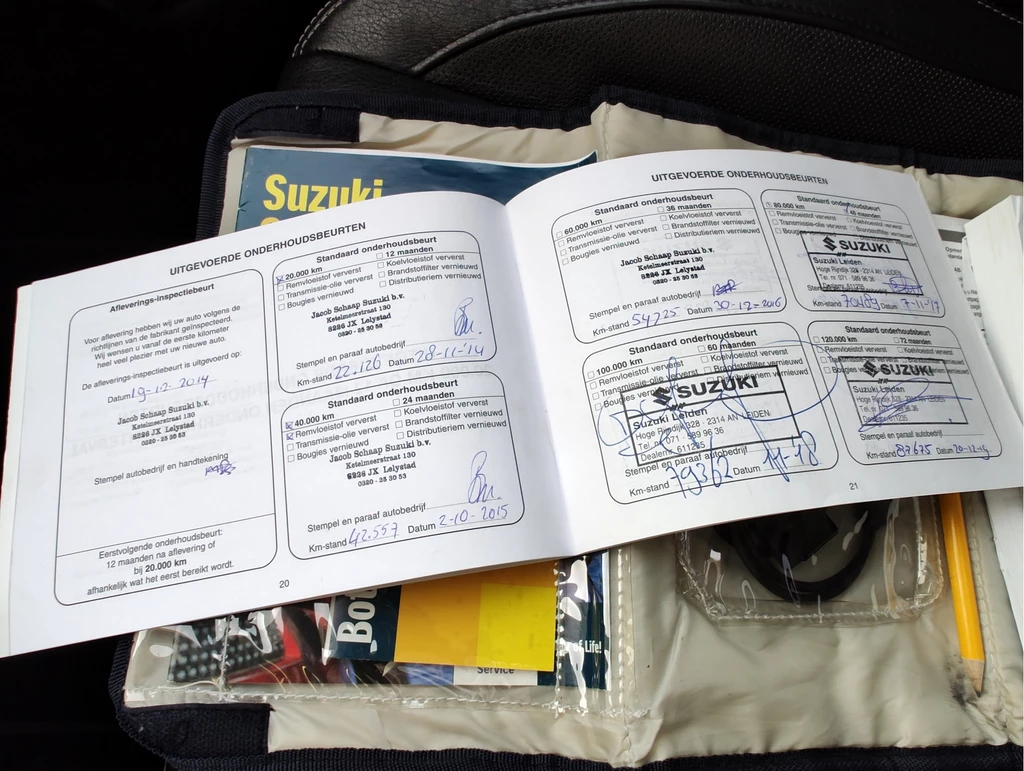 Suzuki
UITGEVOERDE ONDERHOUDSBEURTEN
Afleverings-inspectiebeurt
Voor aflevering hebben wij uw auto volgens de
richtlijnen van de fabrikant geïnspecteerd.
Wij wensen u vanaf de eerste kilometer
heel veel plezier met uw nieuwe auto.
De afleverings-inspectiebeurt is uitgevoerd op:
Datum 19-12-2014
Jacob Schaap Suzuki b.v.
Ketelmeerstraat 130
8226 JX Lelystad
0320 - 25 30 53
Stempel autobedrijf en handtekening
Eerstvolgende onderhoudsbeurt:
12 maanden na aflevering of
bij 20.000 km
afhankelijk wat het eerst bereikt wordt.
Standaard onderhoudsbeurt
20.000 km 12 maanden
Remvloeistof ververst Koelvloeistof ververst
Transmissie-olie ververst Brandstoffilter vernieuwd
Bougies vernieuwd Distributieriem vernieuwd
Jacob Schaap Suzuki b.v.
Ketelmeerstraat 130
8226 JX Lelystad
0320 - 25 30 53
Stempel en paraaf autobedrijf
Km-stand 22.126 Datum 28-11-'14
Standaard onderhoudsbeurt
40.000 km 24 maanden
Remvloeistof ververst Koelvloeistof ververst
Transmissie-olie ververst Brandstoffilter vernieuwd
Bougies vernieuwd Distributieriem vernieuwd
Jacob Schaap Suzuki b.v.
Ketelmeerstraat 130
8226 JX Lelystad
0320 - 25 30 53
Stempel en paraaf autobedrijf
Km-stand 42.557 Datum 2-10-2015
20
UITGEVOERDE ONDERHOUDSBEURTEN
Standaard onderhoudsbeurt
60.000 km 36 maanden
Remvloeistof ververst Koelvloeistof ververst
Transmissie-olie ververst Brandstoffilter vernieuwd
Bougies vernieuwd Distributieriem vernieuwd
Jacob Schaap Suzuki b.v.
Ketelmeerstraat 130
8226 JX Lelystad
0320 - 25 30 53
Stempel en paraaf autobedrijf
Km-stand 54725 Datum 30-12-2016
Standaard onderhoudsbeurt
80.000 km 48 maanden
Remvloeistof ververst Koelvloeistof ververst
Transmissie-olie ververst Brandstoffilter vernieuwd
SUZUKI
Suzuki Leiden
Hoge Rijndijk 328 - 2314 AN LEIDEN
Tel. nr. 071 - 589 96 36
Km-stand 70409 Datum 7-11-'17
Standaard onderhoudsbeurt
100.000 km 60 maanden
Remvloeistof ververst Koelvloeistof ververst
Transmissie-olie ververst Brandstoffilter vernieuwd
SUZUKI
Suzuki Leiden
Hoge Rijndijk 328 - 2314 AN LEIDEN
Tel. nr. 071 - 589 96 36
Dealernr. 611235
Stempel en paraaf autobedrijf
Km-stand 79362 Datum 11-18
Standaard onderhoudsbeurt
120.000 km 72 maanden
Remvloeistof ververst Koelvloeistof ververst
SUZUKI
Suzuki Leiden
Stempel en paraaf autobedrijf
Km-stand 87675 Datum
21
Service
of Life!